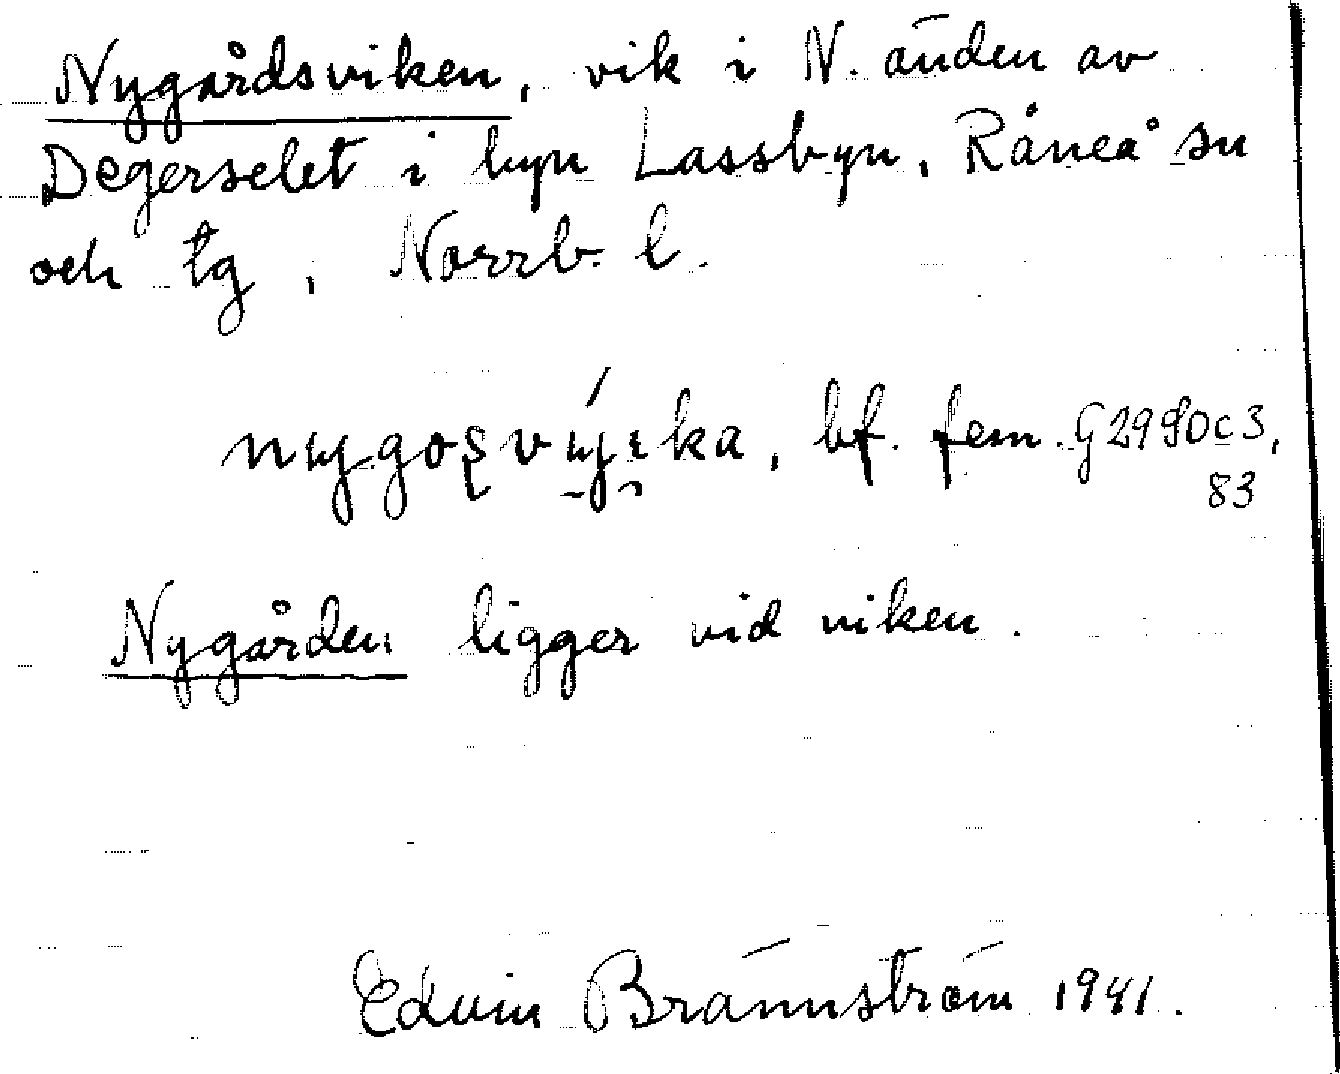 Nygårdsviken, vik i N. änden av
Degerselet i byn Lassbyn, Råneå sn
och tg, Norrb. l.
bf. fem. G2990c3,
83
Nygården ligger vid viken.
Edvin Brännström 1941.